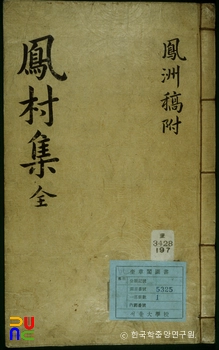 鳳洲稿附
鳳村集 全
奎
3428
197
5325
1
서울大學校
ⓒ 한국학중앙연구원